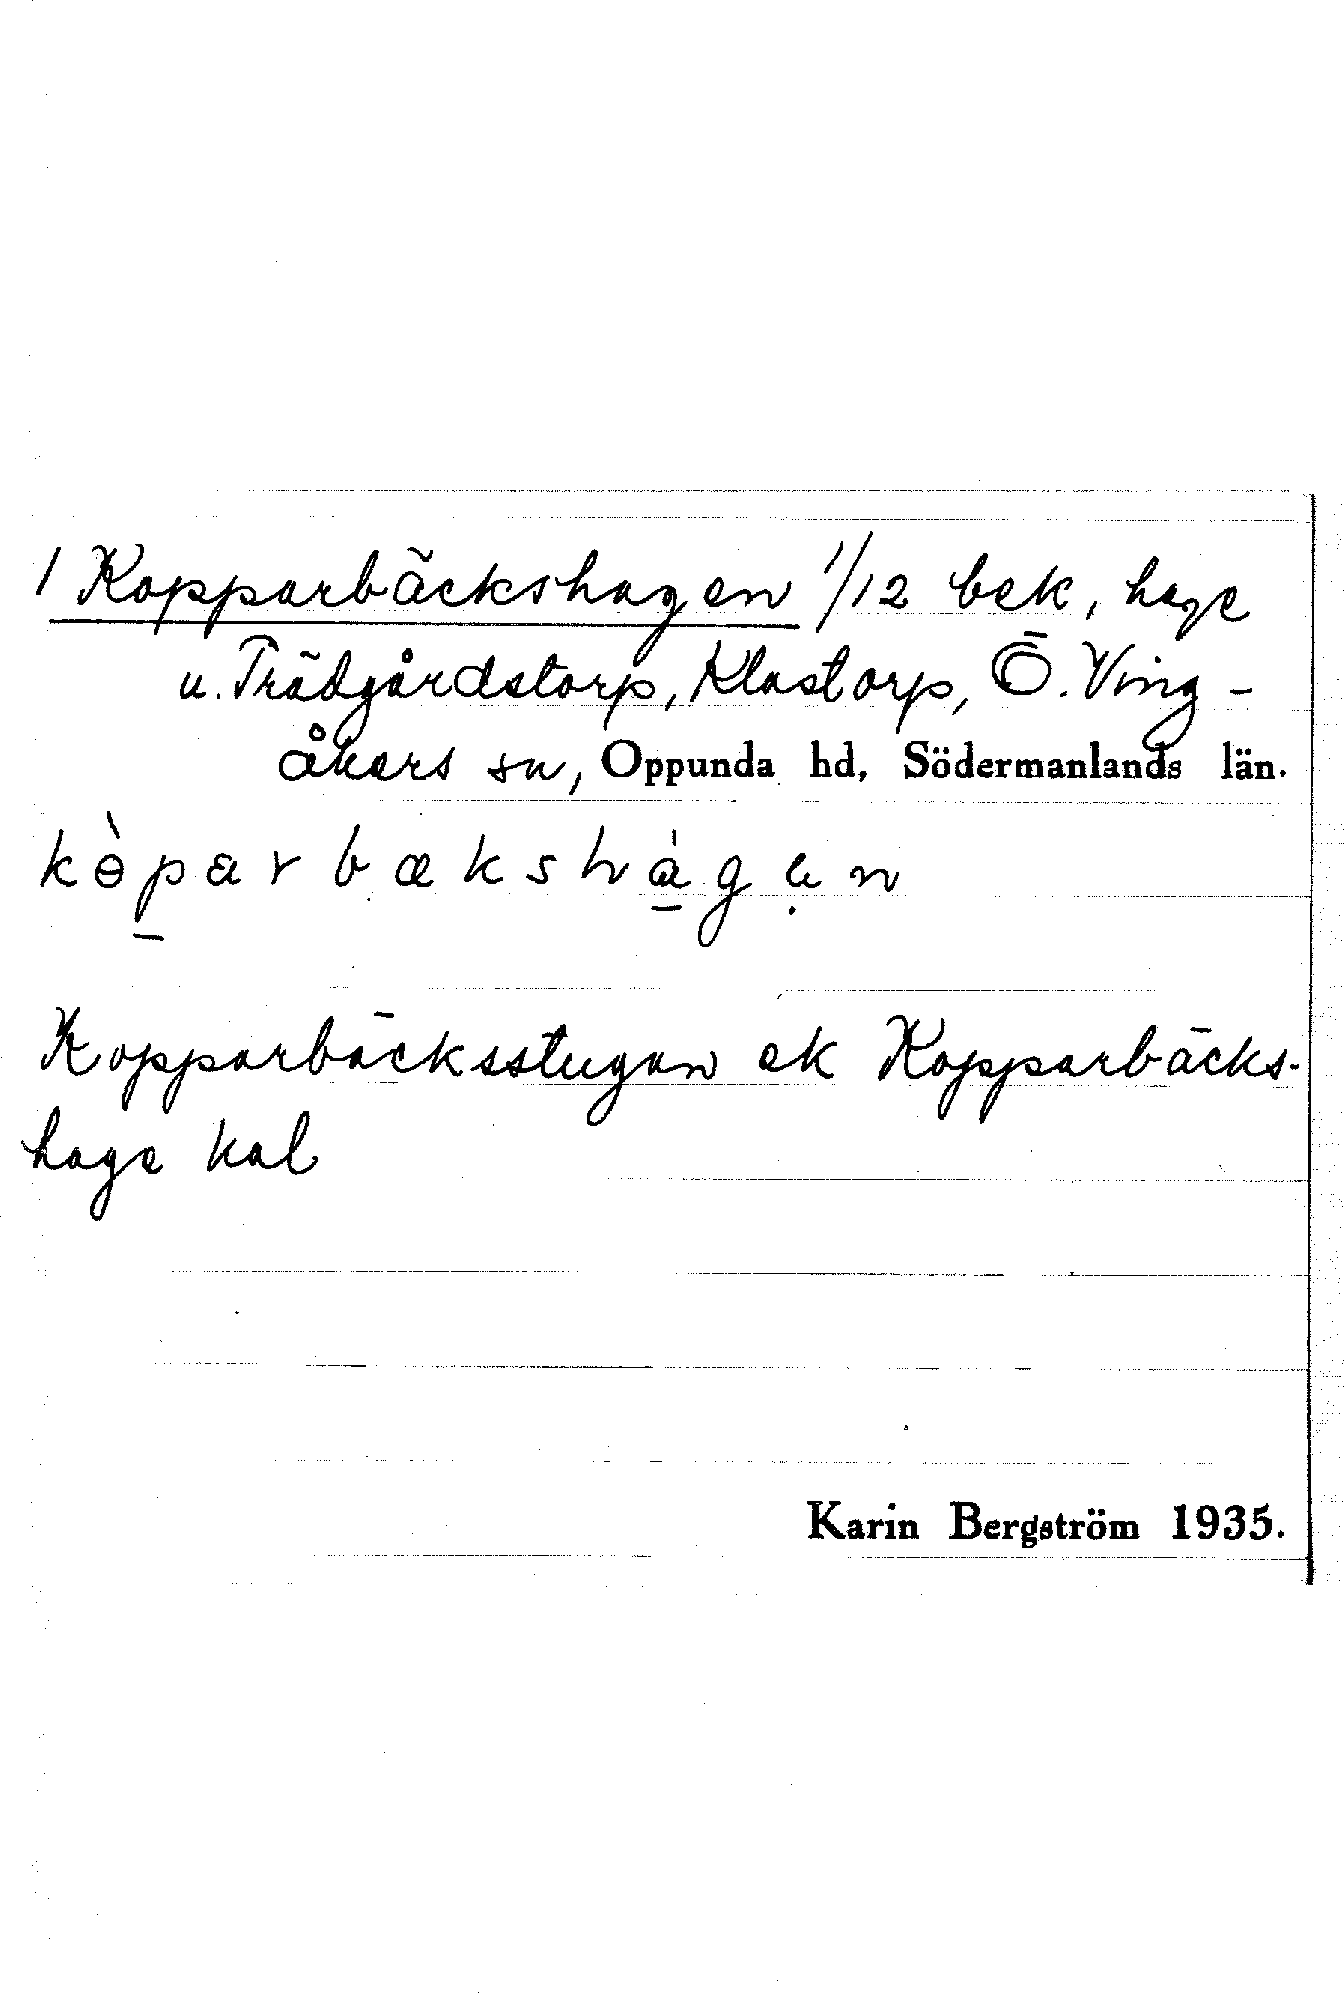 1 Kopparbäckshagen 1/12 bek, hage
u. Trädgårdstorp, Klastorp, Ö. Ving-
åkers sn, Oppunda hd, Södermanlands län.
kɵ̀p̠arbækshà̠gẹn
Kopparbäcksstugan ek Kopparbäcks-
hage kal
Karin Bergström 1935.